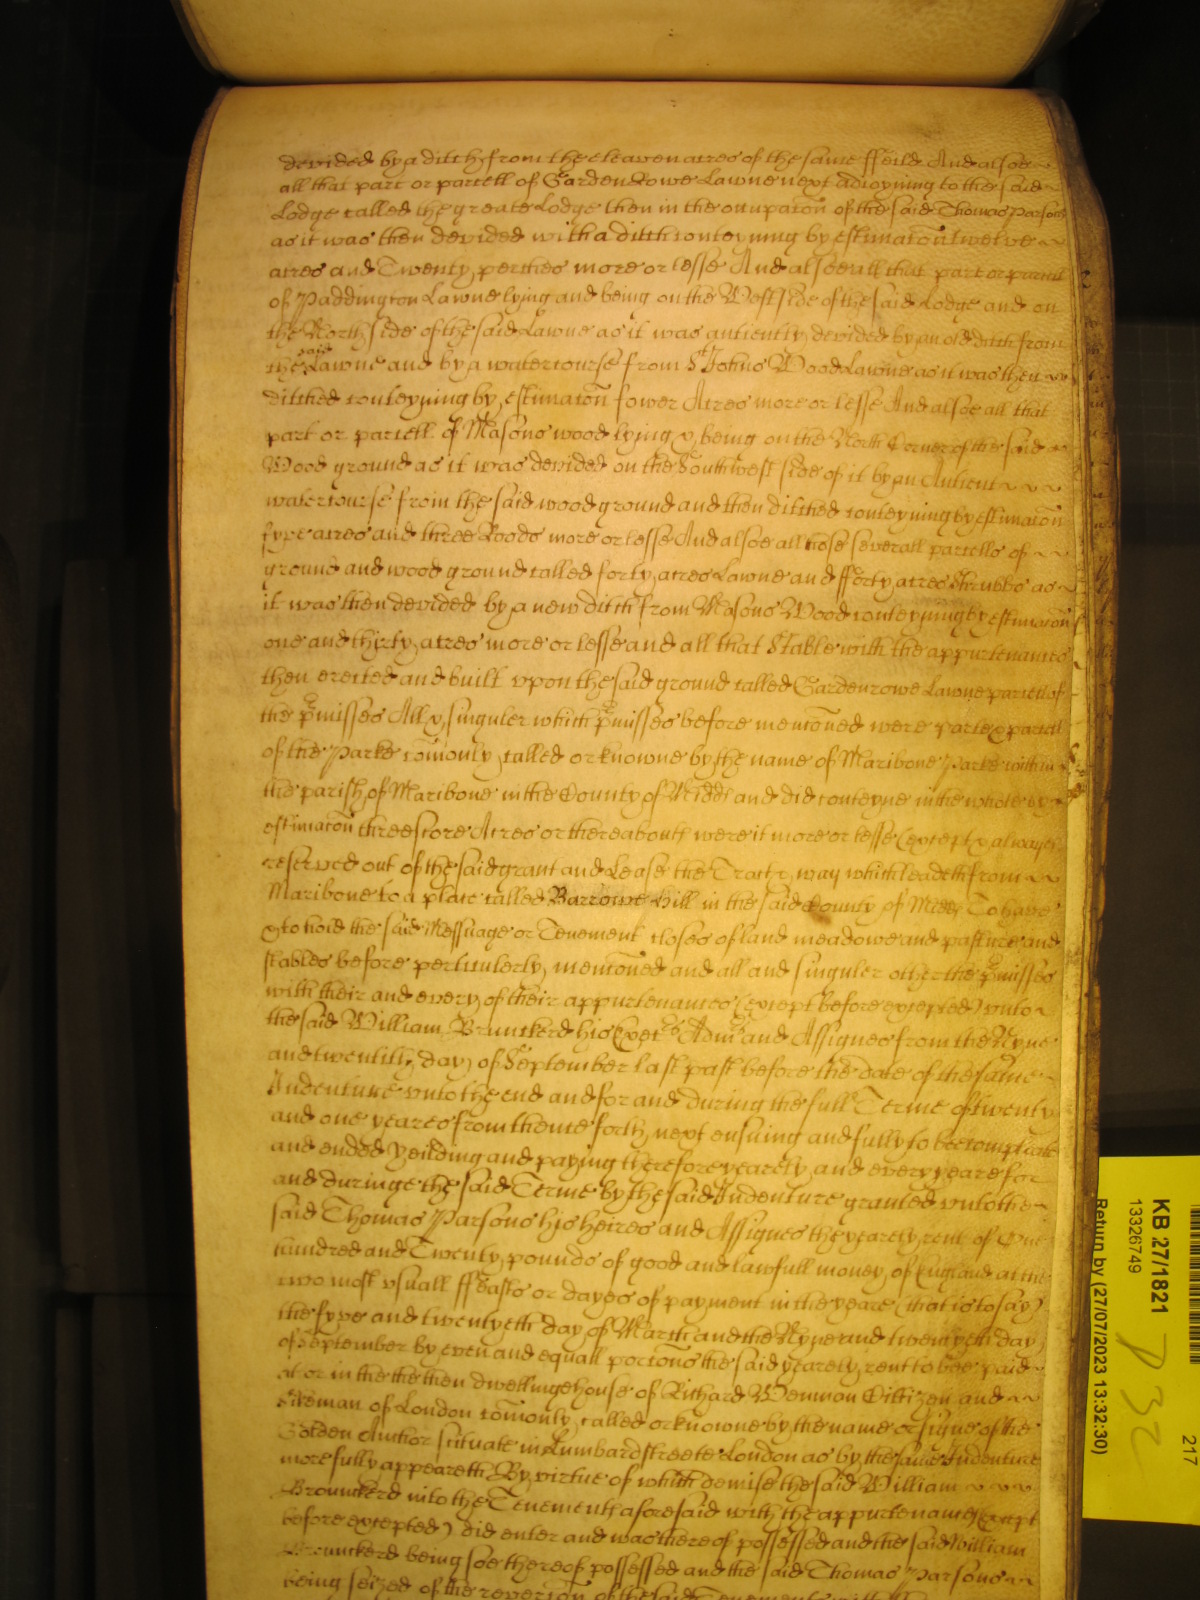 devided by a ditch from the eleaven acres of the same ffeild And alsoe
all that part or parcell of Garden Rowe Lawne next adioyning to the said
Lodge called the greate Lodge then in the occupacõn of the said Thomas Parsons
as it was then devided with a ditch conteyning by estimacõn twelve
acres and Twenty perches more or lesse And alsoe all that part or parcell
of Paddington Lawne lying and being on the West side of the said Lodge and on
the North side of the said Lawne as it was antiently devided by an old ditch from
the said Lawne and by a watercourse from St Johns Wood Lawne as it was then
ditched conteyning by estimacõn fower Acres more or lesse And alsoe all that
part or parcell of Masons wood lying & being on the North Corner of the said
Wood ground as it was devided on the Southwest side of it by an Antient
watercourse from the said wood ground and then ditched conteyning by estimacõn
fyve acres and three Roods more or lesse And alsoe all those severall parcells of
ground and wood ground called forty acres Lawne and fforty acres Shrubbs as
it was then devided by a new ditch from Masons Wood conteyning by estimacõn
one and thirty acres more or lesse and all that Stable with the appurtenances
then erected and built upon the said ground called Gardenrowe Lawne parcell of
the p̃misses All & singuler which p̃misses before mencõned were parte & parcell
of the Parke com̃only called or knowne by the name of Maribone Parke within
the parish of Maribone in the County of Midd and did conteyne in the whole by
estimacõn threescore Acres or thereabouts were it more or lesse (except & alwayes
reserved out of the said grant and Lease the Tract & way which leadeth from
Maribone to a place called Barrowe Hill in the said County of Midd To have
& to hold the said Messuage or Tenement closes of land meadowe and pasture and
stables before perticulerly mencõned and all and singuler other the p̃misses
with their and every of their appurtenances (except before excepted) unto
the said William Brunckerd his Execrs Admrs and Assignes from the Nyne
and twentith day of September last past before the date of the same
Indenture unto the end and for and during the full Terme of twenty
and one yeares from thence forth next ensuing and fully to bee compleate
and ended Yeilding and paying therefore yearely and every yeare for
and duringe the said Terme by the said Indenture granted unto the
said Thomas Parsons his heires and Assignes the yearely rent of One
hundred and Twenty pounds of good and lawfull money of England at the
two most usuall ffeasts or dayes of payment in the yeare (that is to say)
the fyve and twentyeth day of March and the Nyne and twentyeth day
of September by even and equall porcõns the said yearely rent to bee paid
at or in the the then dwellinge house of Richard Wenman Cittizen and
of London com̃only called or knowne by the name or signe of the
Golden Anchor scituate in Lumbard streete London as by the same Indenture
more fully appeareth By virtue of which demise the said William
Brounckerd into the Tenements aforesaid with the appurtenances (Except
before excepted) did enter and was thereof possessed and the said William
Brounckerd being soe thereof possessed and the said Thomas Parsons
being seized of the revercõn of the said Tenements with the
KB 27/1821
13326749
Return by (27/07/2023 13:32:30)
217
P 32